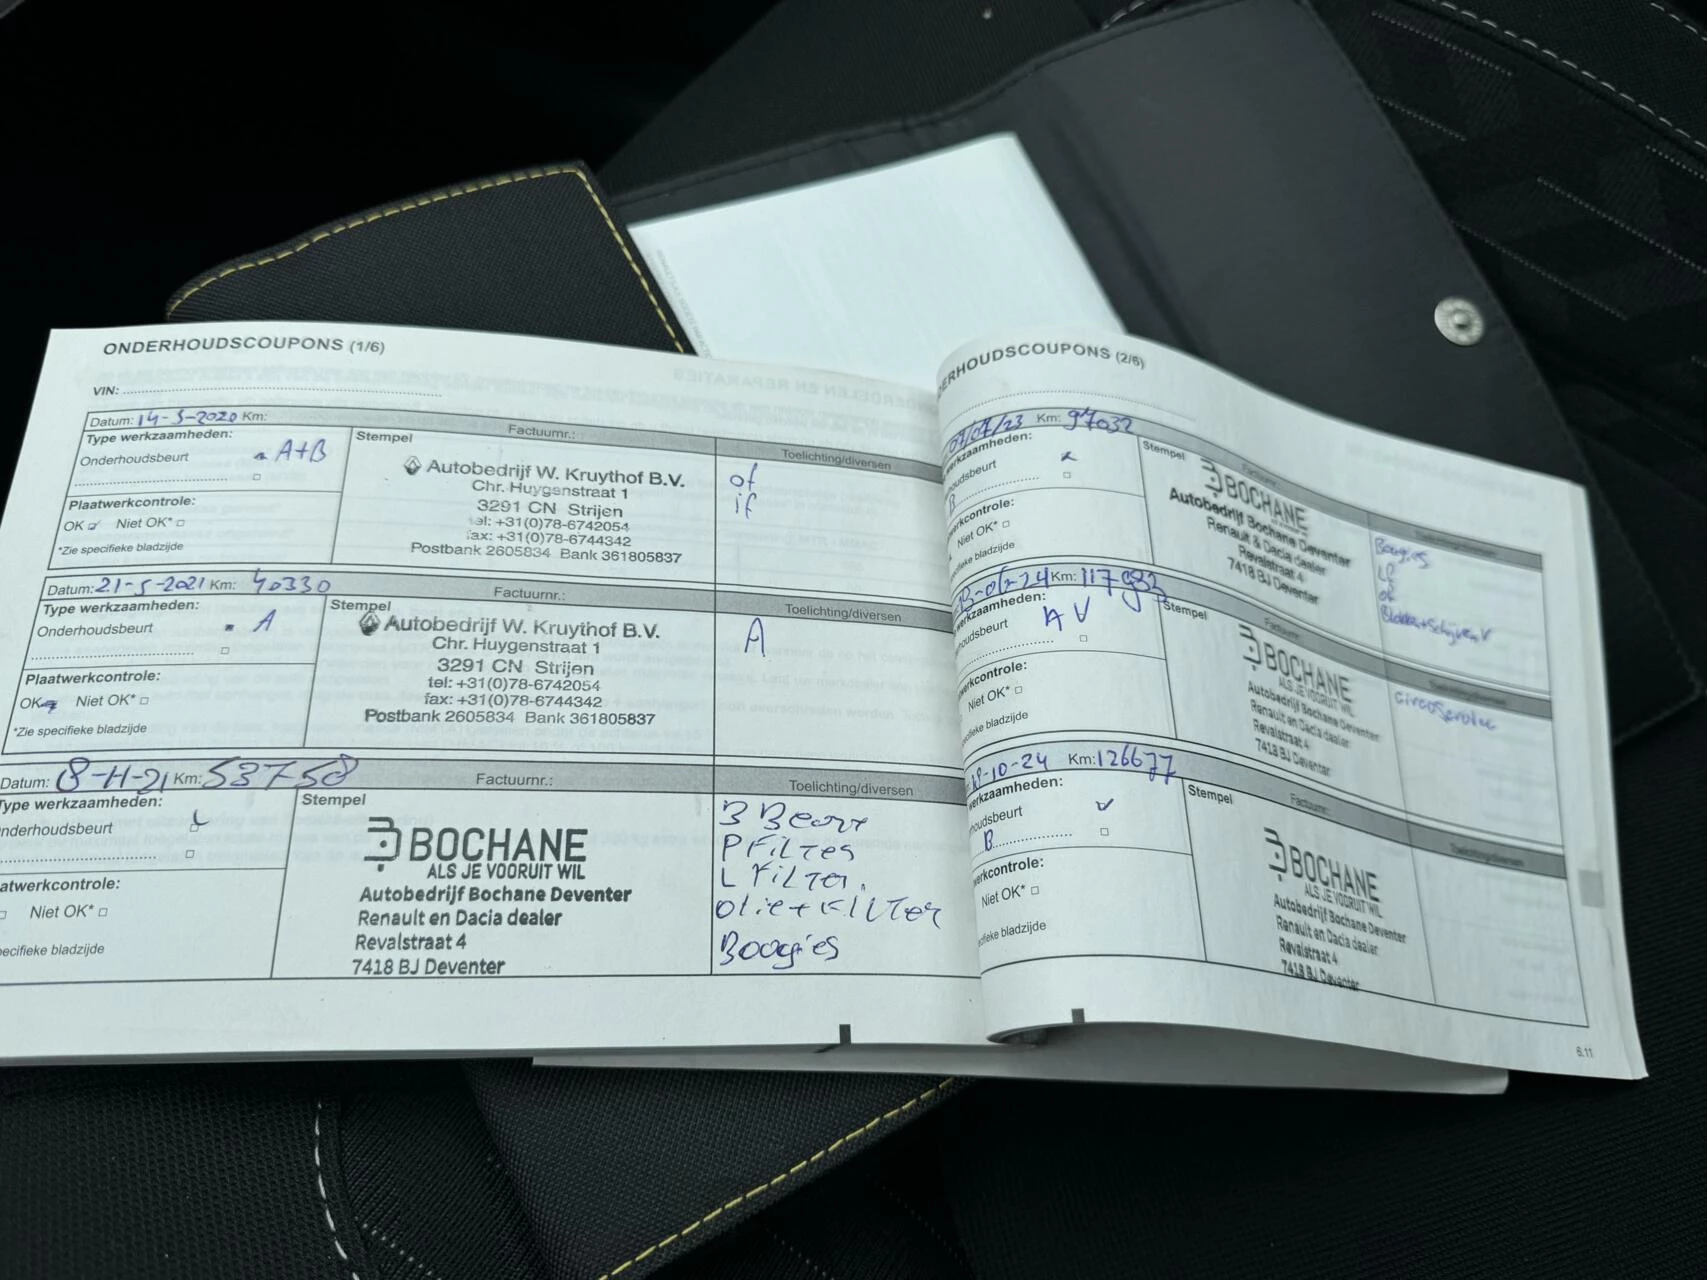 ONDERHOUDSCOUPONS (1/6)
VIN:
Datum: 14-5-2020 Km:
Factuurnr.:
Type werkzaamheden:
Stempel
Toelichting/diversen
Onderhoudsbeurt A+B
Plaatwerkcontrole:
OK Niet OK*
*Zie specifieke bladzijde
Autobedrijf W. Kruythof B.V.
Chr. Huygenstraat 1
3291 CN Strijen
tel: +31(0)78-6742054
fax: +31(0)78-6744342
Postbank 2605834 Bank 361805837
of
if
Datum: 21-5-2021 Km: 40330
Factuurnr.:
Type werkzaamheden:
Stempel
Toelichting/diversen
Onderhoudsbeurt A
Plaatwerkcontrole:
OK Niet OK*
*Zie specifieke bladzijde
Autobedrijf W. Kruythof B.V.
Chr. Huygenstraat 1
3291 CN Strijen
tel: +31(0)78-6742054
fax: +31(0)78-6744342
Postbank 2605834 Bank 361805837
A
Datum: 8-11-21 Km: 53758
Factuurnr.:
Type werkzaamheden:
Stempel
Toelichting/diversen
nderhoudsbeurt
atwerkcontrole:
Niet OK*
pecifieke bladzijde
BOCHANE
ALS JE VOORUIT WIL
Autobedrijf Bochane Deventer
Renault en Dacia dealer
Revalstraat 4
7418 BJ Deventer
B Beurt
P Filter
L Filter
Olie + Filter
Boogies
ERHOUDSCOUPONS (2/6)
07/07/23 Km: 97032
Factuurnr.:
werkzaamheden:
Stempel
houdsbeurt
B
werkcontrole:
Niet OK*
specifieke bladzijde
BOCHANE
Autobedrijf Bochane Deventer
Renault & Dacia dealer
Revalstraat 4
7418 BJ Deventer
Boogies
LF
OF
Km: 117932
Factuurnr.:
werkzaamheden:
Stempel
Toelichting/diversen
houdsbeurt A V
werkcontrole:
Niet OK*
specifieke bladzijde
BOCHANE
ALS JE VOORUIT WIL
Autobedrijf Bochane Deventer
Renault en Dacia dealer
Revalstraat 4
7418 BJ Deventer
-10-24 Km: 126677
Factuurnr.:
werkzaamheden:
Stempel
Toelichting/diversen
houdsbeurt
B
werkcontrole:
Niet OK*
cifieke bladzijde
BOCHANE
ALS JE VOORUIT WIL
Autobedrijf Bochane Deventer
Renault en Dacia dealer
Revalstraat 4
7418 BJ Deventer
6.11